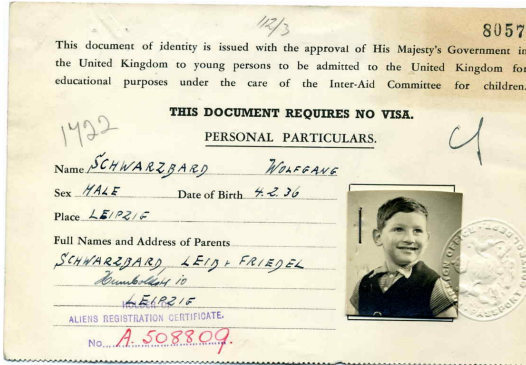 112/3
8057
This document of identity is issued with the approval of His Majesty's Government in
the United Kingdom to young persons to be admitted to the United Kingdom for
educational purposes under the care of the Inter-Aid Committee for children.
THIS DOCUMENT REQUIRES NO VISA.
1722
PERSONAL PARTICULARS.
Name SCHWARZBARD WOLFGANG
Sex MALE Date of Birth 4.2.36
Place LEIPZIG
Full Names and Address of Parents
SCHWARZBARD, LEIB + FRIEDEL
10
LEIPZIG
ALIENS REGISTRATION CERTIFICATE.
No. A. 508809.
PASSPORT